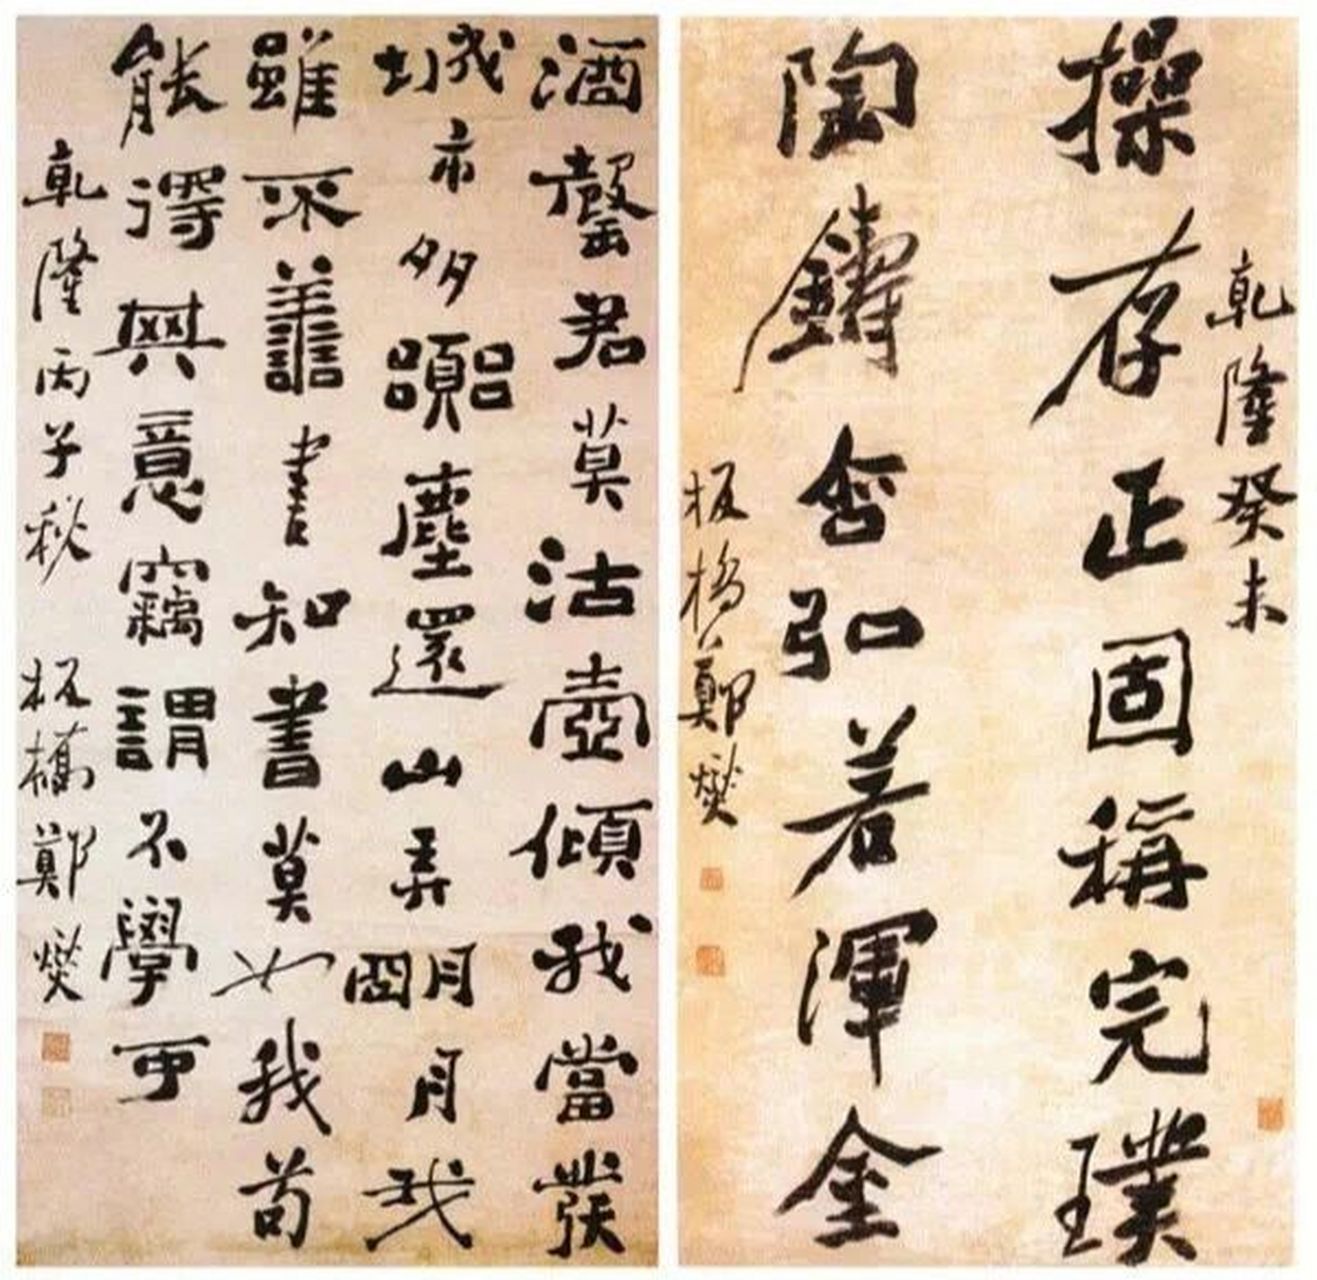 乾隆癸未
操存正固稱完璞
陶鑄含弘若渾金
板橋鄭燮
酒罄君莫沽壺傾我當發
城市多囂塵還山弄明月我
雖不善書知書莫如我苟
能得其意竊謂不學可
乾隆丙子秋 板橋鄭燮